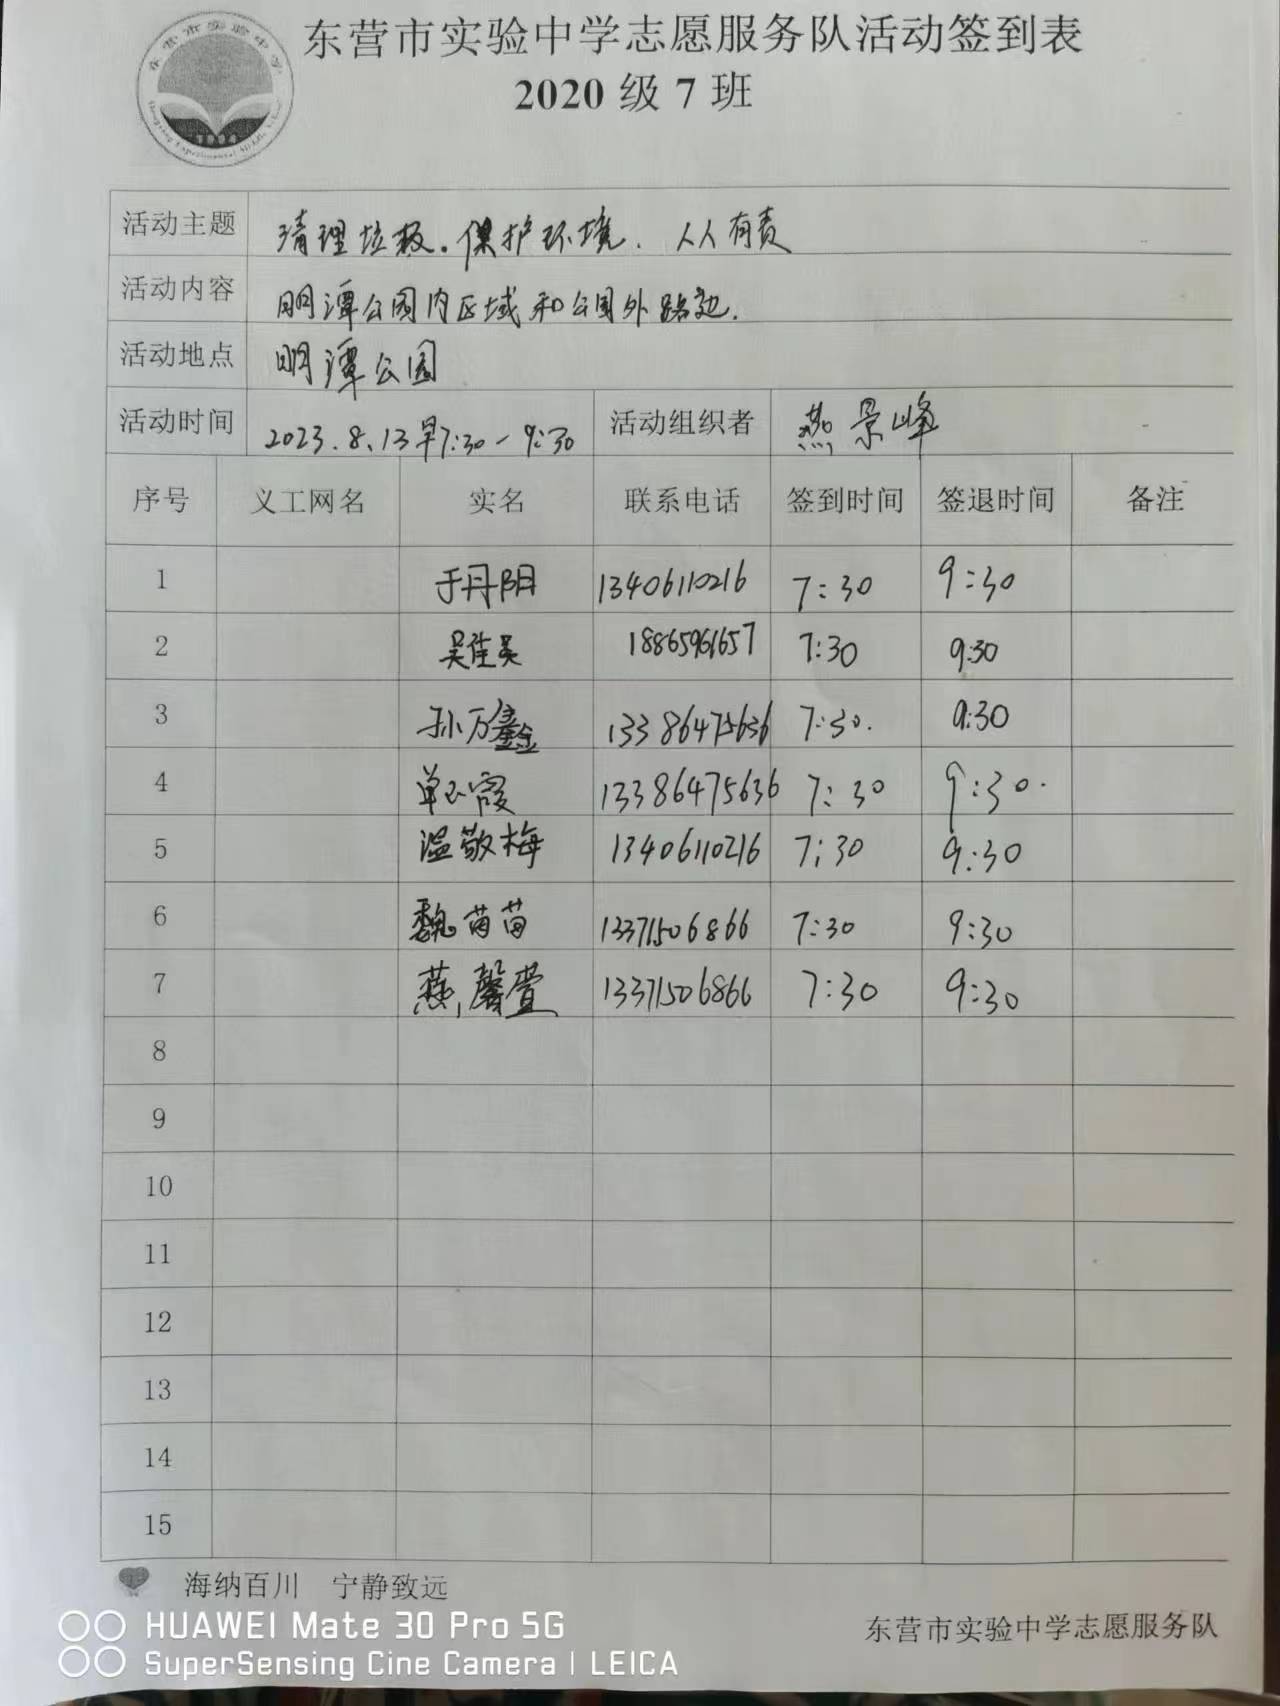 东营市实验中学志愿服务队活动签到表
2020 级 7 班
活动主题 清理垃圾。保护环境、人人有责
活动内容 明潭公园内区域和公园外路边.
活动地点 明潭公园
活动时间 2023.8.13早7:30-9:30 活动组织者 燕景峰
序号 义工网名 实名 联系电话 签到时间 签退时间 备注
1 于丹阳 13406110216 7:30 9:30
2 吴佳昊 18865961657 7:30 9:30
3 孙万鑫 13386475636 7:30. 9:30
4 单玉霞 13386475636 7:30 9:30.
5 温敬梅 13406110216 7:30 9:30
6 魏苗苗 13371506866 7:30 9:30
7 燕馨萱 13371506866 7:30 9:30
8
9
10
11
12
13
14
15
海纳百川 宁静致远
东营市实验中学志愿服务队
HUAWEI Mate 30 Pro 5G
SuperSensing Cine Camera | LEICA